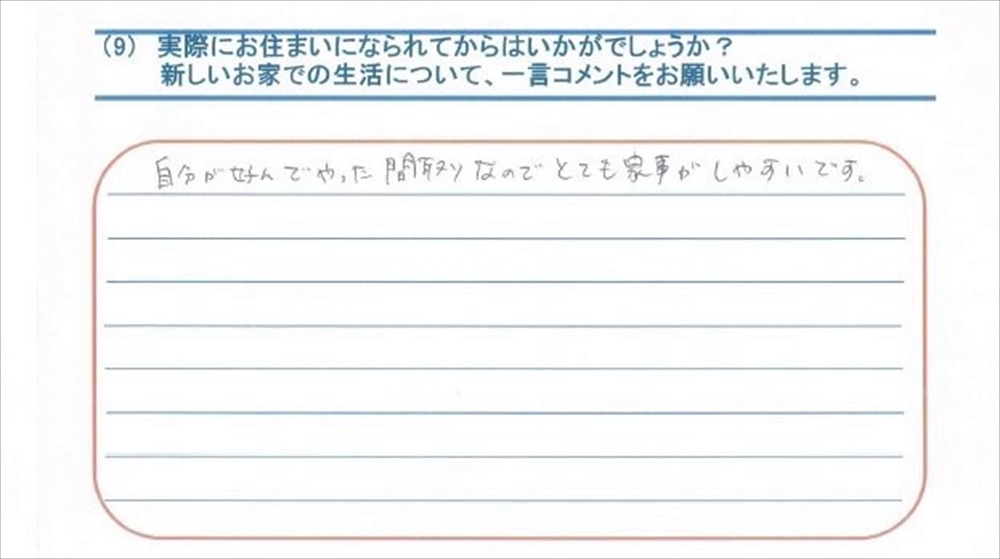 (9) 実際にお住まいになられてからはいかがでしょうか?
新しいお家での生活について、一言コメントをお願いいたします。
自分が好んでやった間取りなのでとても家事がしやすいです。